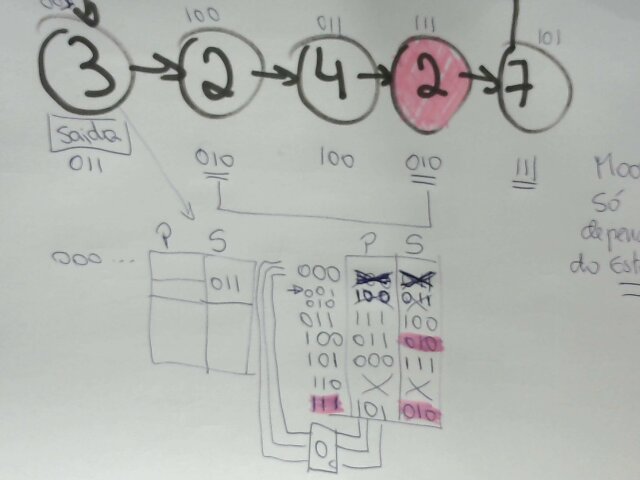 100 011 111 101
3 2 4 2 7
Saída
011 010 100 010 111
Moo
Só
depen
do Est
P S P S
000 ...
011
000
001
010 100
011 111 100
100 011 010
101 000 111
110 X X
111 101 010
0